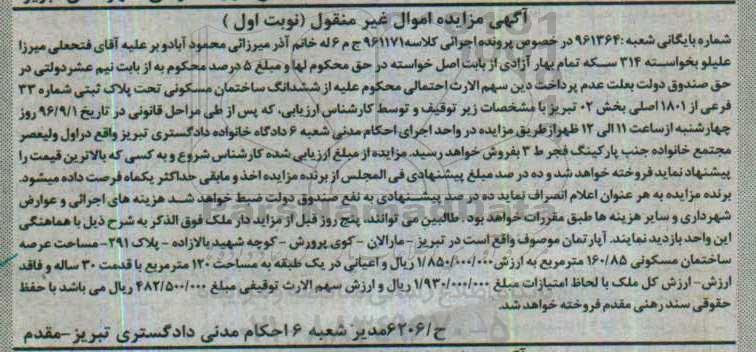 آگهی مزایده اموال غیر منقول (نوبت اول)
شماره بایگانی شعبه: ۹۶۱۳۶۴ در خصوص پرونده اجرائی کلاسه ۹۶۱۱۷۱ ج م ۶ له خانم آذر میرزائی محمود آبادو بر علیه آقای فتحعلی میرزا
علیلو بخواسته ۳۱۴ سکه تمام بهار آزادی از بابت اصل خواسته در حق محکوم لها و مبلغ ۵ درصد محکوم به از بابت نیم عشر دولتی در
حق صندوق دولت بعلت عدم پرداخت دین سهم الارث احتمالی محکوم علیه از ششدانگ ساختمان مسکونی تحت پلاک ثبتی شماره ۳۳
فرعی از ۱۸۰۱ اصلی بخش ۰۲ تبریز با مشخصات زیر توقیف و توسط کارشناس ارزیابی، که پس از طی مراحل قانونی در تاریخ ۹۶/۹/۱ روز
چهارشنبه از ساعت ۱۱ الی ۱۲ ظهر از طریق مزایده در واحد اجرای احکام مدنی شعبه ۶ دادگاه خانواده دادگستری تبریز واقع در اول ولیعصر
مجتمع خانواده جنب پارکینگ فجر ط ۳ بفروش خواهد رسید. مزایده از مبلغ ارزیابی شده کارشناس شروع و به کسی که بالاترین قیمت را
پیشنهاد نماید فروخته خواهد شد و ده در صد مبلغ پیشنهادی فی المجلس از برنده مزایده اخذ و مابقی حداکثر یکماه فرصت داده میشود.
برنده مزایده به هر عنوان اعلام انصراف نماید ده در صد پیشنهادی به نفع صندوق دولت ضبط خواهد شد هزینه های اجرائی و عوارض
شهرداری و سایر هزینه ها طبق مقررات خواهد بود. طالبین می توانند، پنج روز قبل از مزاید دار ملک فوق الذکر به شرح ذیل با هماهنگی
این واحد بازدید نمایند. آپارتمان موصوف واقع است در تبریز - مارالان - کوی پرورش - کوچه شهید بالازاده - پلاک ۲۹۱ - مساحت عرصه
ساختمان مسکونی ۱۶۰/۸۵ مترمربع به ارزش ۱/۸۵۰/۰۰۰/۰۰۰ ریال و اعیانی در یک طبقه به مساحت ۱۲۰ مترمربع با قدمت ۳۰ ساله و فاقد
ارزش - ارزش کل ملک با لحاظ امتیازات مبلغ ۱/۹۳۰/۰۰۰/۰۰۰ ریال و ارزش سهم الارث توقیفی مبلغ ۴۸۲/۵۰۰/۰۰۰ ریال می باشد با حفظ
حقوقی سند رهنی مقدم فروخته خواهد شد.
ح/۶۲۰۶ مدیر شعبه ۶ احکام مدنی دادگستری تبریز - مقدم